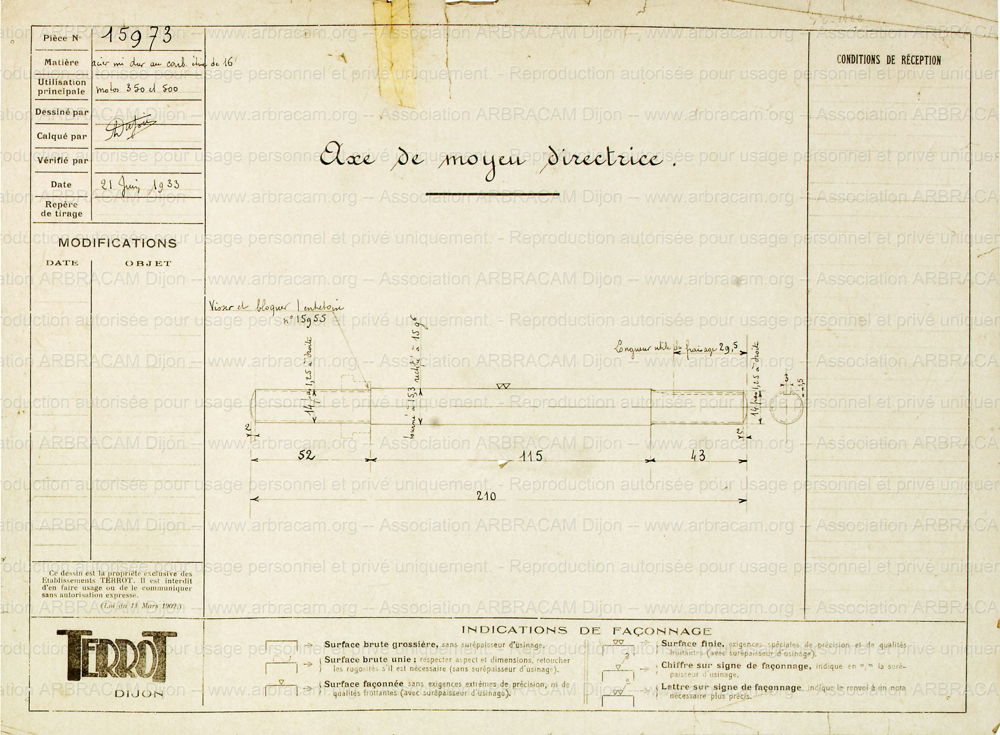 Pièce N° 15973
Matière acier mi dur au carb. étiré de 16
Utilisation principale motos 350 et 500
Dessiné par
Calqué par
Vérifié par
Date 21 Juin 1933
Repère de tirage
MODIFICATIONS
DATE OBJET
CONDITIONS DE RÉCEPTION
Axe de moyeu directrice.
Visser et bloquer l'entretoise
n° 15955
14 pas 1,25 à droite
tourné à 15,3 rectifié à 15 g6
Longueur utile de fraisage 29,5
14 pas 1,25 à droite
1,5
2
2
52
115
43
210
Ce dessin est la propriété exclusive des
Etablissements TERROT. Il est interdit
d'en faire usage ou de le communiquer
sans autorisation expresse.
(Loi du 11 Mars 1902.)
TERROT
DIJON
INDICATIONS DE FAÇONNAGE
Surface brute grossière, sans surépaisseur d'usinage.
Surface brute unie ; respecter aspect et dimensions, retoucher
les rugosités s'il est nécessaire (sans surépaisseur d'usinage).
Surface façonnée sans exigences extrêmes de précision, ni de
qualités frottantes (avec surépaisseur d'usinage).
Surface finie, exigences spéciales de précision et de qualités
frottantes (avec surépaisseur d'usinage).
Chiffre sur signe de façonnage, indique en m/m la suré-
paisseur d'usinage.
Lettre sur signe de façonnage, indique le renvoi à un nota
nécessaire plus précis.
www.arbracam.org -- Association ARBRACAM Dijon -- www.arbracam.org -- Association ARBRACAM Dijon
Reproduction autorisée pour usage personnel et privé uniquement. - Reproduction autorisée pour usage personnel et privé uniquement.